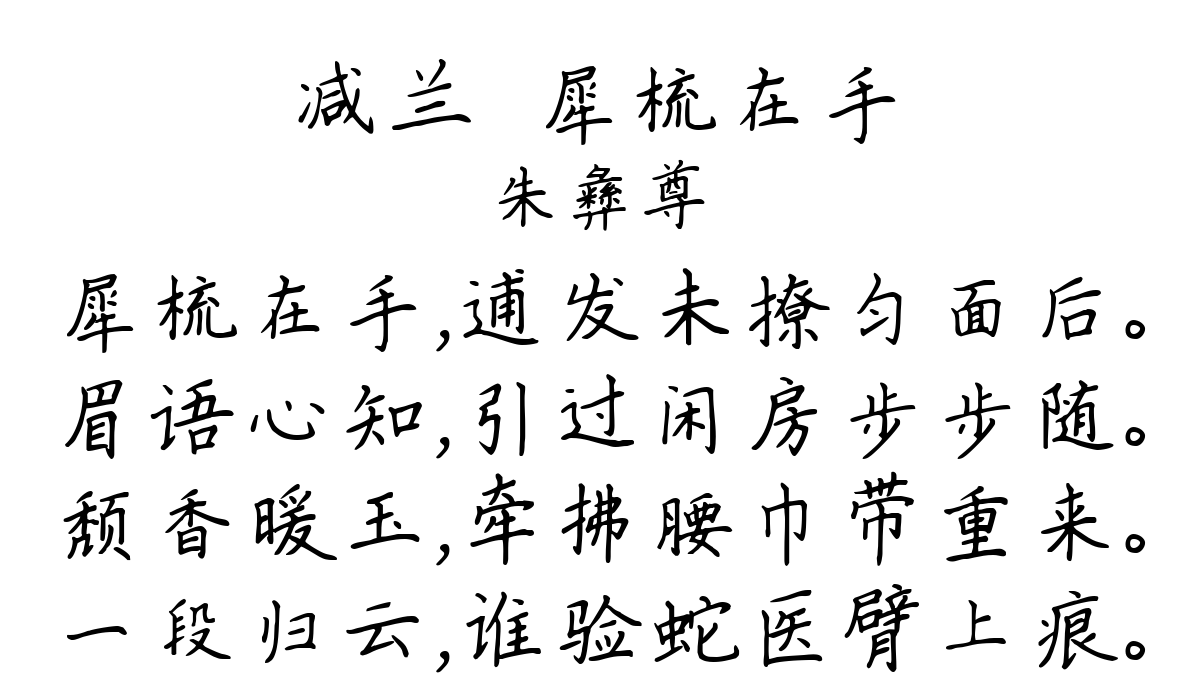 减兰 犀梳在手
朱彝尊
犀梳在手,逋发未撩匀面后。
眉语心知,引过闲房步步随。
颓香暖玉,牵拂腰巾带重来。
一段归云,谁验蛇医臂上痕。